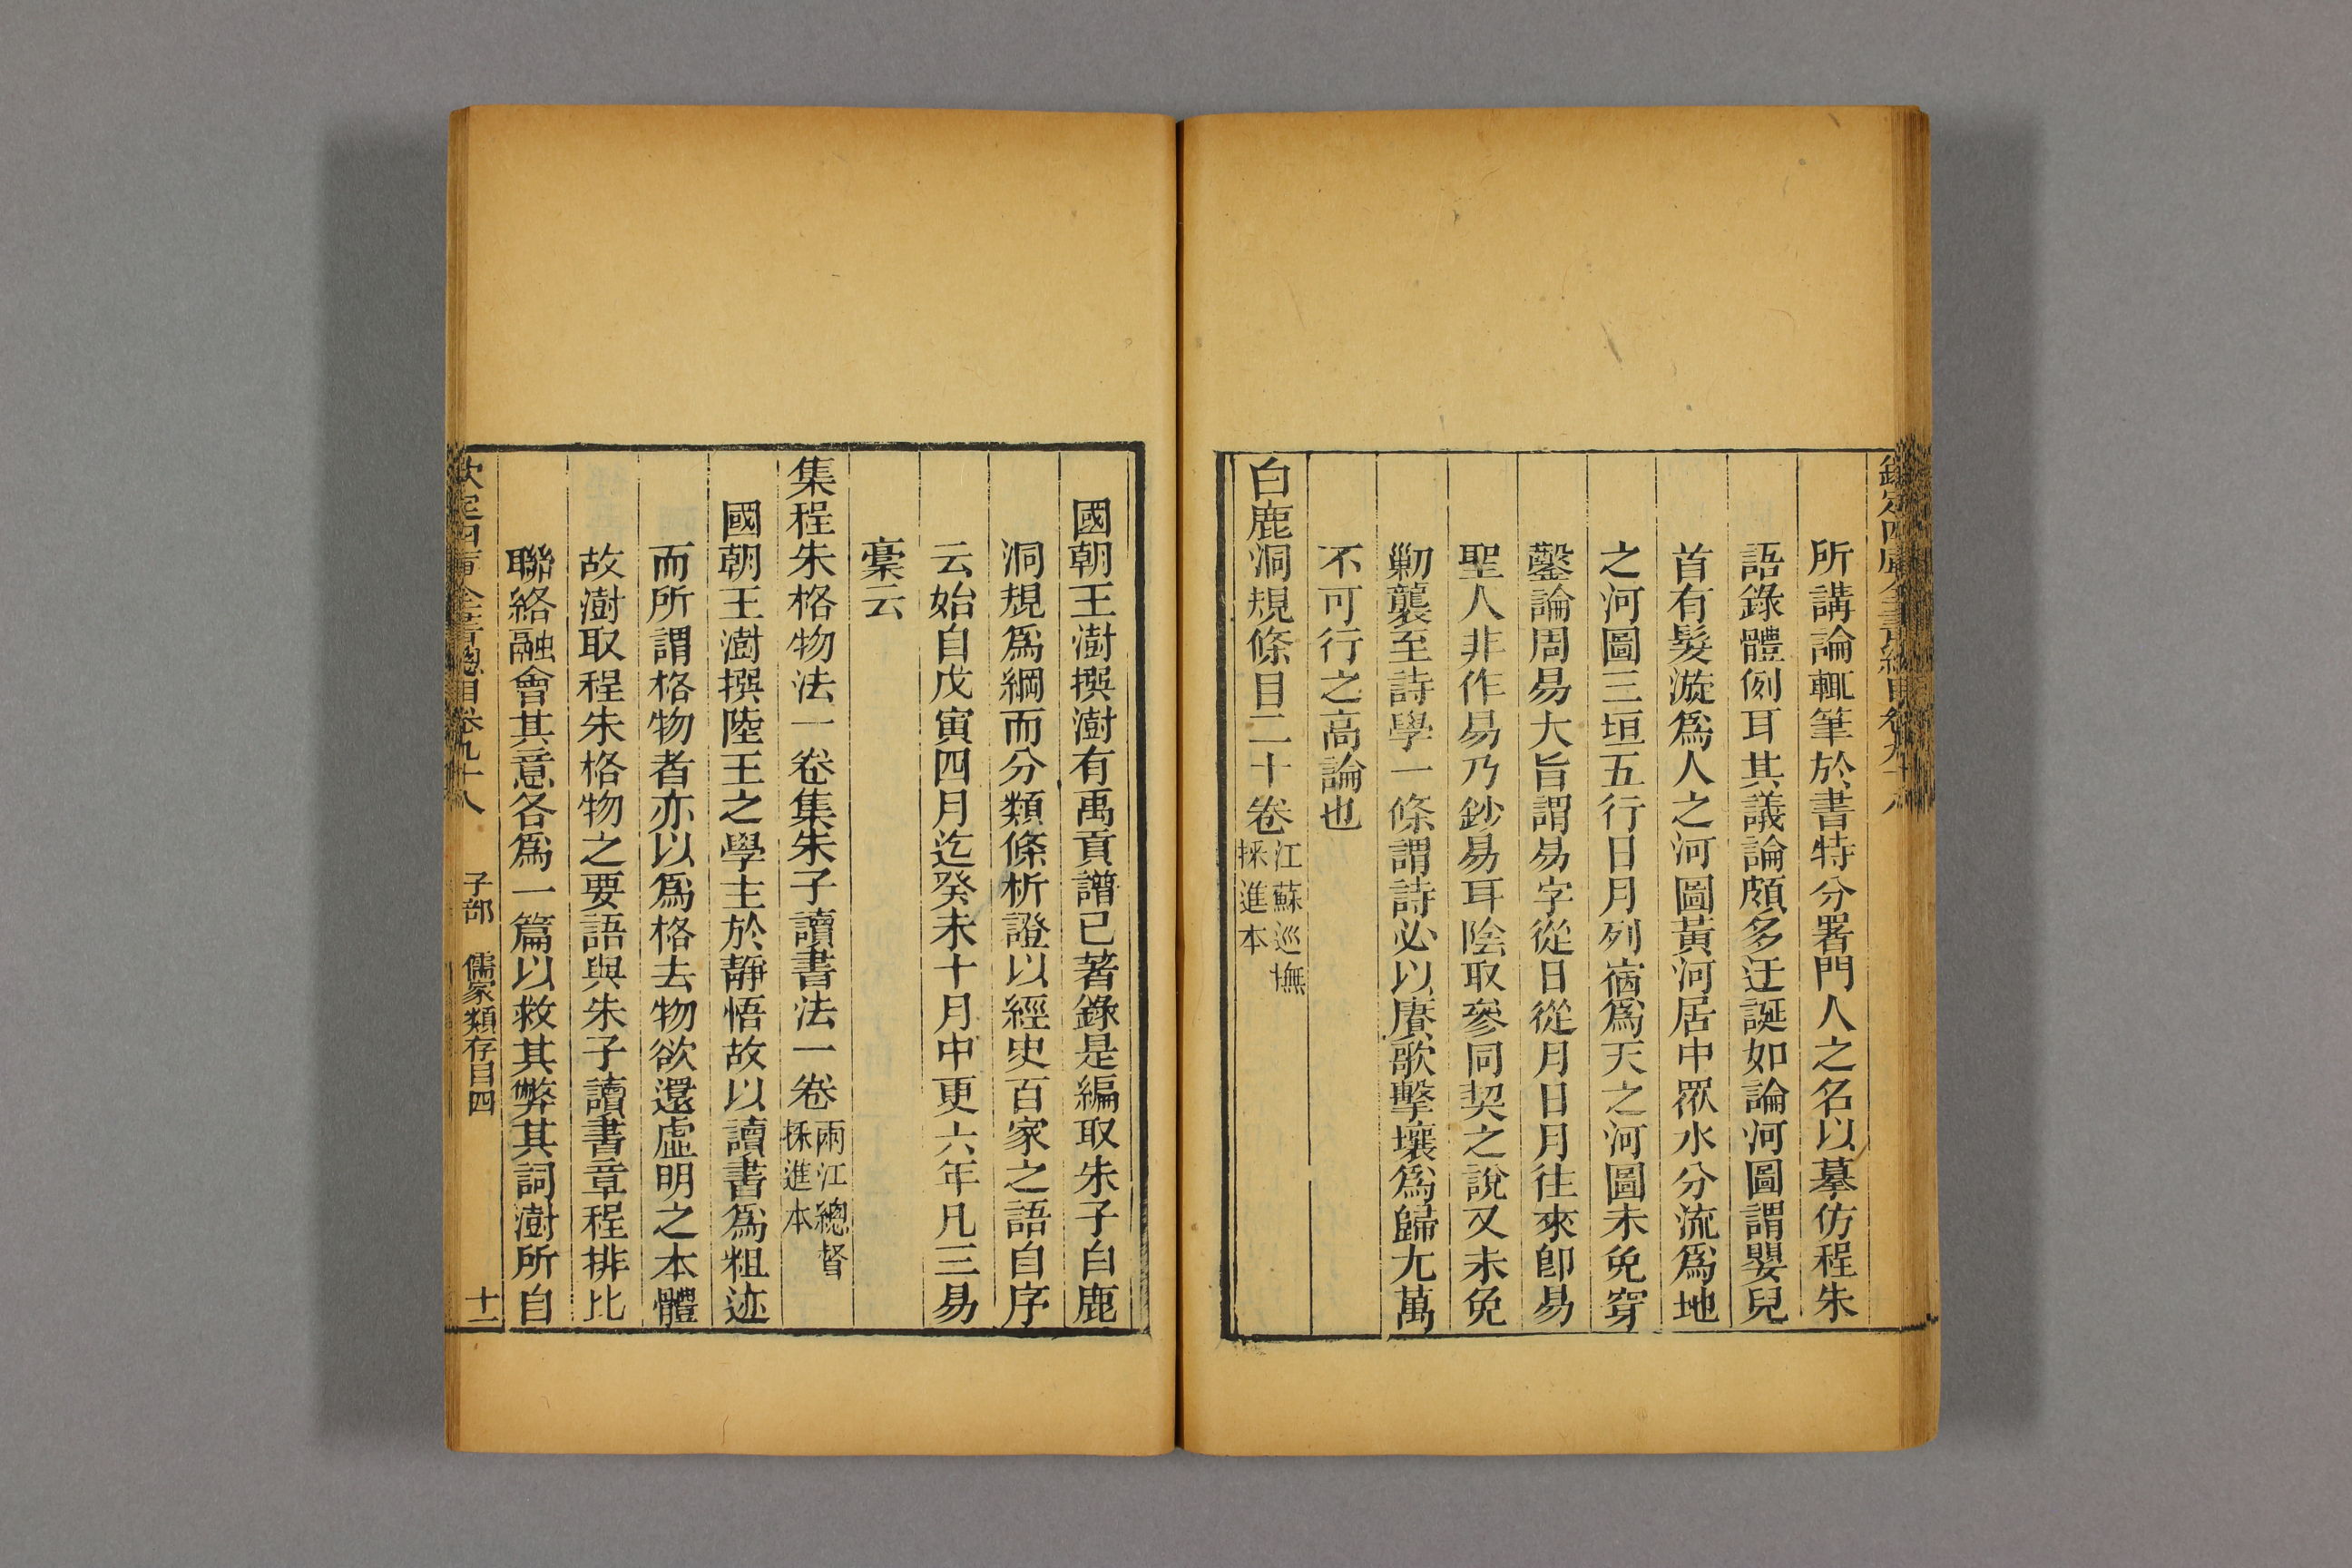 欽定四庫全書總目卷九十八
所講論輒筆於書特分署門人之名以摹仿程朱
語錄體例耳其議論頗多迂誕如論河圖謂嬰兒
首有髮漩爲人之河圖黃河居中眾水分流爲地
之河圖三垣五行日月列宿爲天之河圖未免穿
鑿論周易大旨謂易字從日從月日月往來卽易
聖人非作易乃鈔易耳陰取參同契之說又未免
勦襲至詩學一條謂詩必以賡歌擊壤爲歸尤萬
不可行之高論也
白鹿洞規條目二十卷江蘇巡撫
採進本
國朝王澍撰澍有禹貢譜已著錄是編取朱子白鹿
洞規爲綱而分類條析證以經史百家之語自序
云始自戊寅四月迄癸未十月中更六年凡三易
稾云
集程朱格物法一卷集朱子讀書法一卷兩江總督
採進本
國朝王澍撰陸王之學主於靜悟故以讀書爲粗迹
而所謂格物者亦以爲格去物欲還虛明之本體
故澍取程朱格物之要語與朱子讀書章程排比
聯絡融會其意各爲一篇以救其弊其詞澍所自
欽定四庫全書總目卷九十八　子部　儒家類存目四　十一